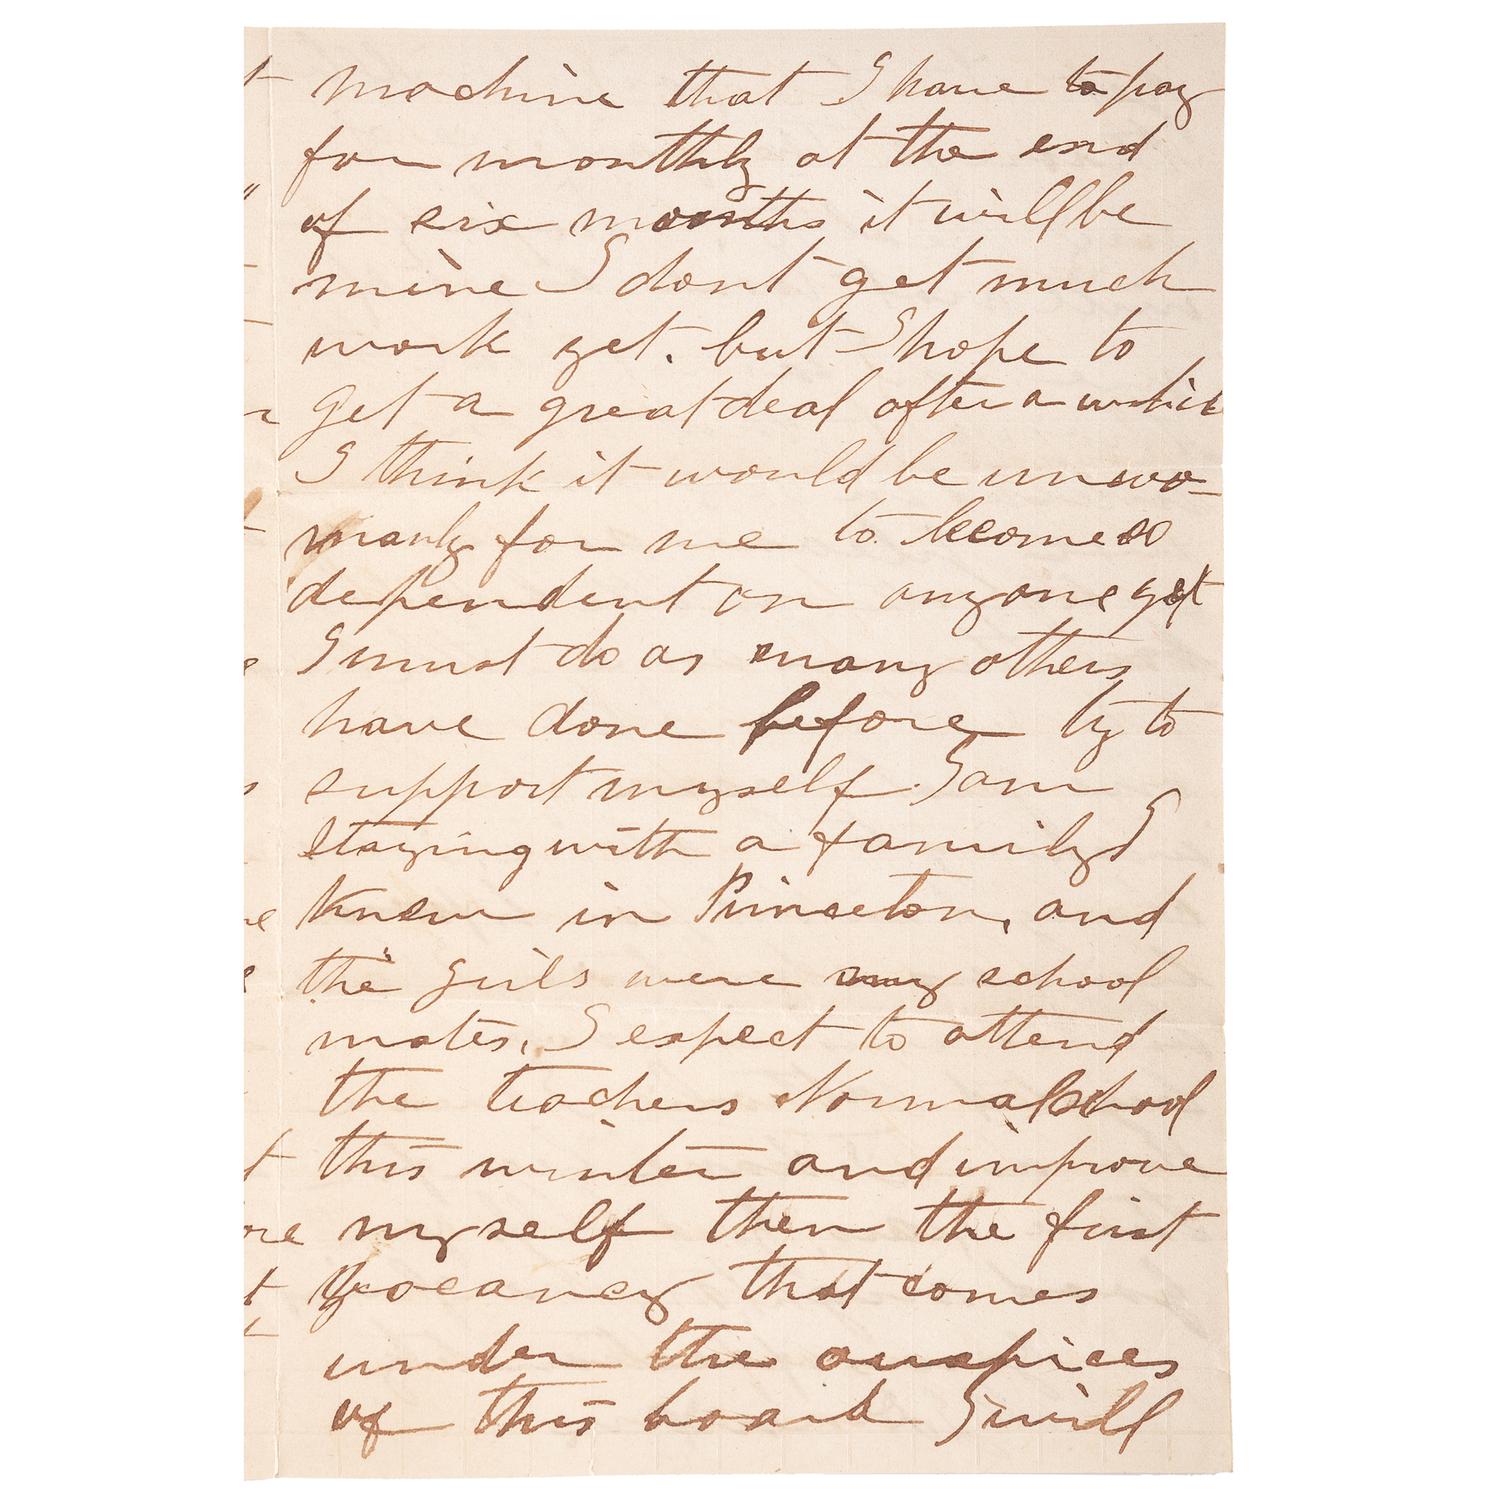 machine that I have to pay
for monthly at the end
of six months it will be
mine I dont get much
work yet. but I hope to
get a great deal after a while
I think it would be unwo-
manly for me to become so
dependent on anyone yet
I must do as many others
have done before try to
support myself. I am
staying with a family I
knew in Princeton, and
the girls were my school
mates, I expect to attend
the teachers Normal School
this winter and improve
myself then the first
vacancy that comes
under the auspices
of this board I will